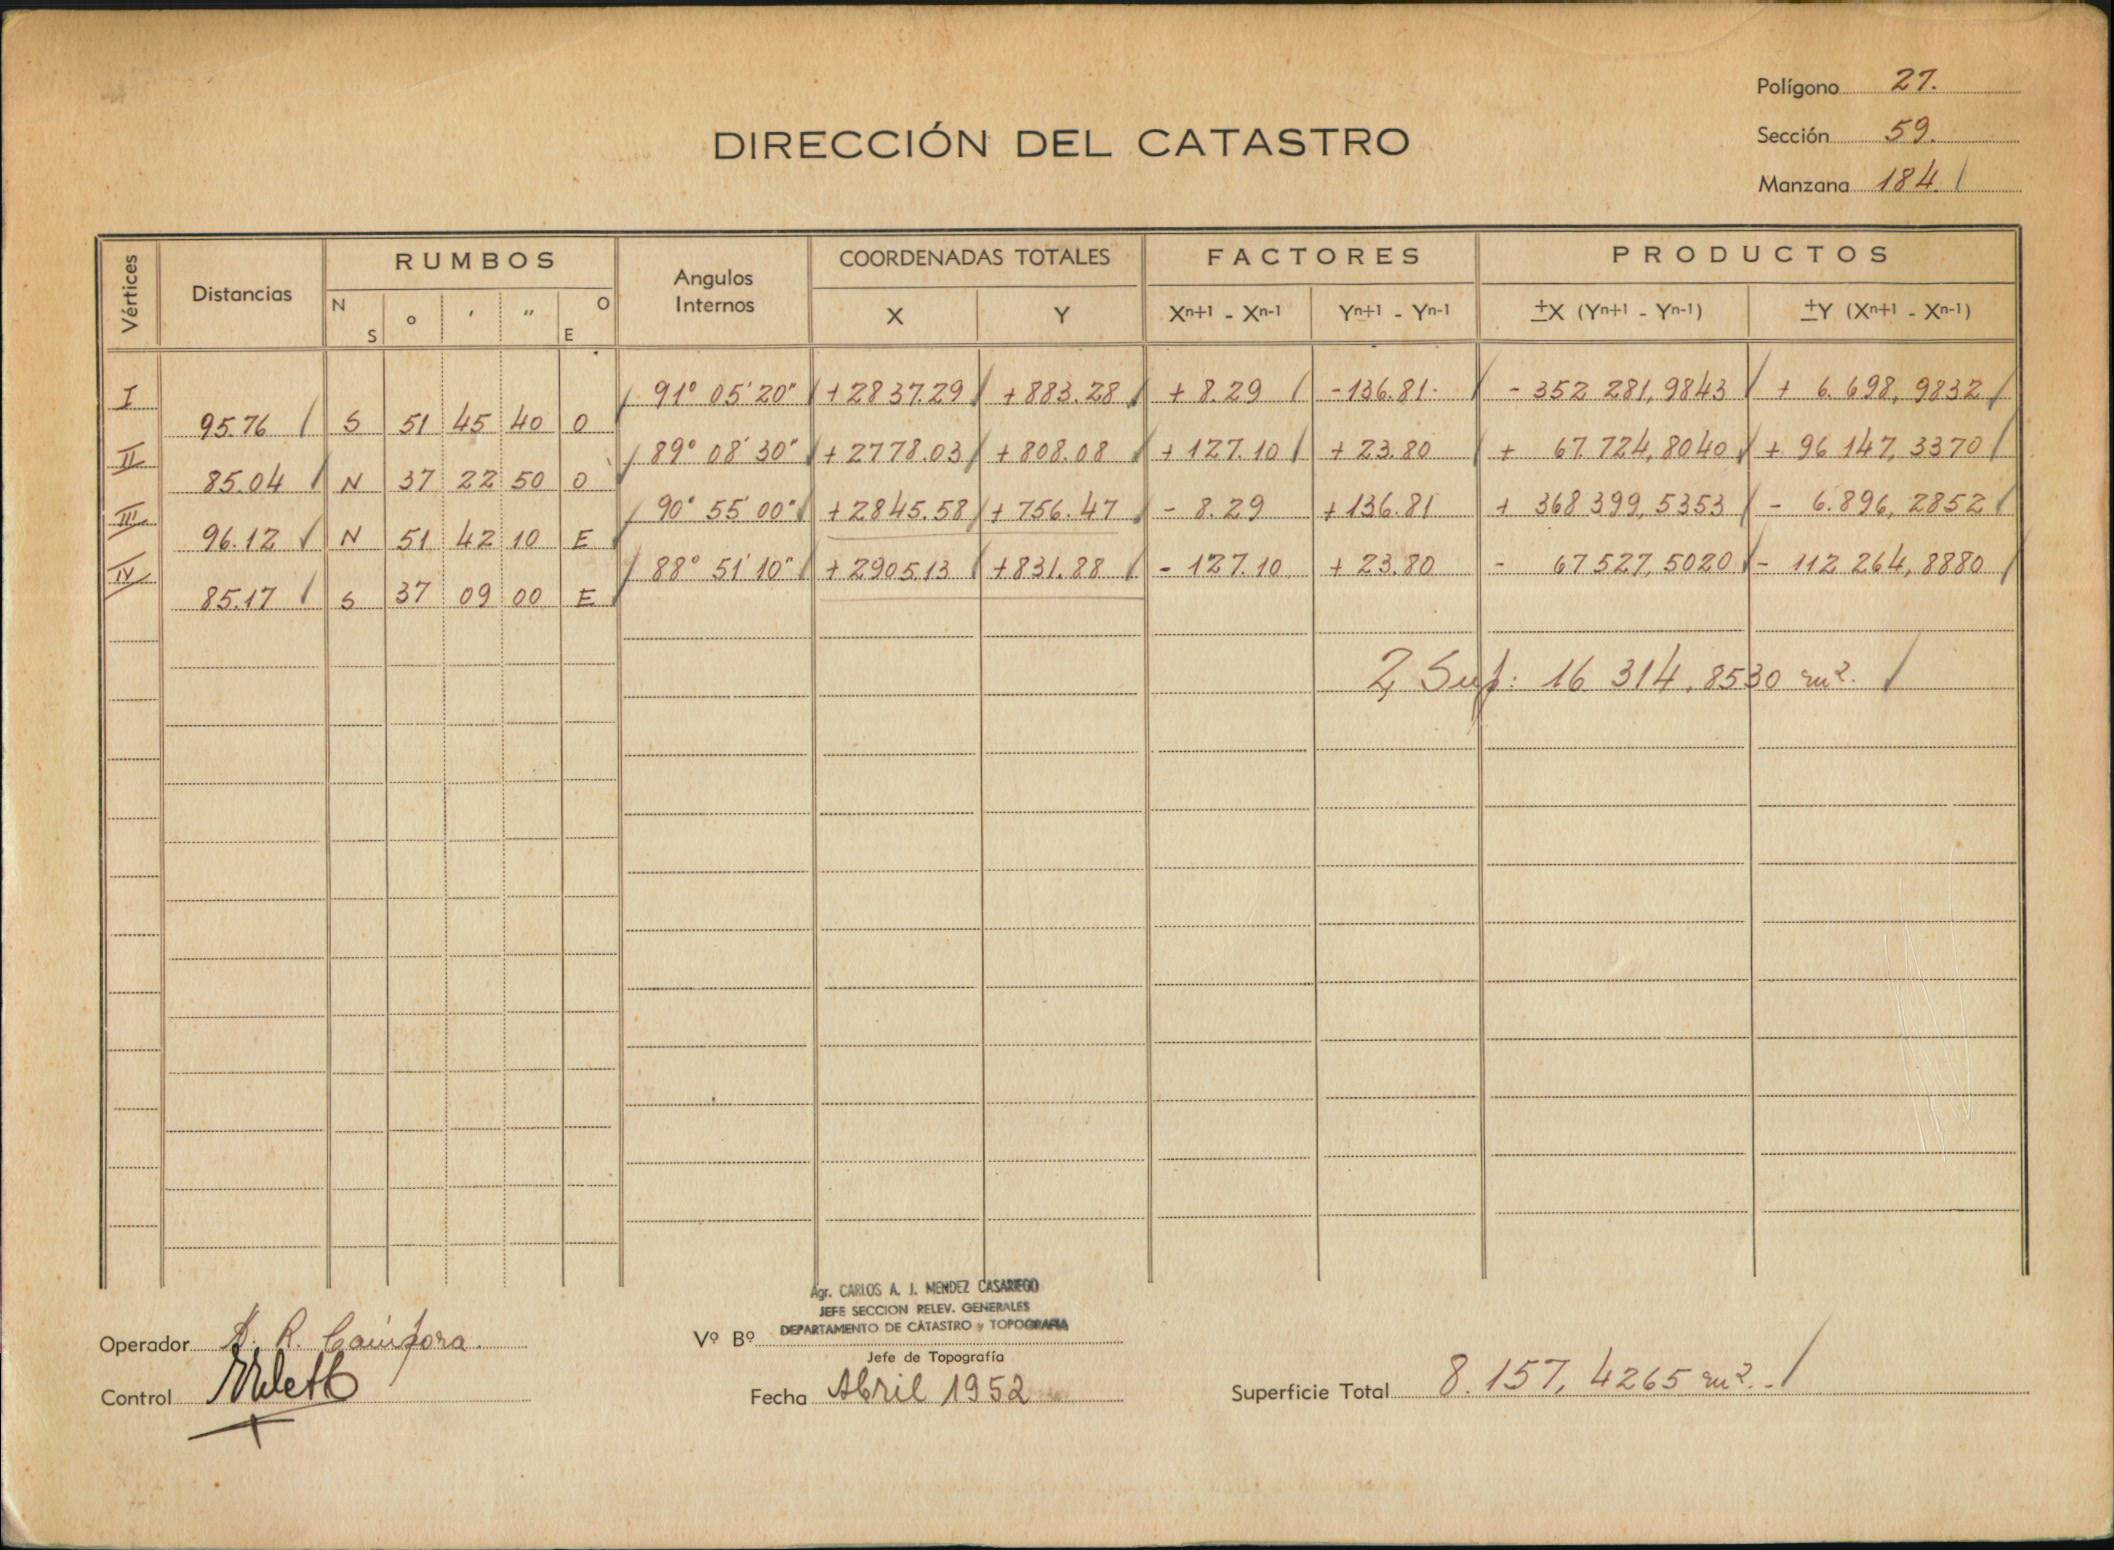 Polígono 27.
DIRECCIÓN DEL CATASTRO
Sección 59.
Manzana 184.
Vértices Distancias RUMBOS Angulos Internos COORDENADAS TOTALES FACTORES PRODUCTOS
N S ° ' " O E X Y Xn+1 - Xn-1 Yn+1 - Yn-1 ±X (Yn+1 - Yn-1) ±Y (Xn+1 - Xn-1)
I 91° 05' 20" +2837.29 +883.28 +8.29 -126.81 - 352 281,9843 + 6.698,9832
95.76 S 51 45 40 O
II 89° 08' 30" +2778.03 +808.08 +127.10 +23.80 + 67.724,8040 + 96 147,3370
85.04 N 37 22 50 O
III 90° 55' 00" +2845.58 +756.47 - 8.29 +126.81 + 368 399,5353 - 6.896,2852
96.12 N 51 42 10 E
IV 88° 51' 10" +2905.13 +831.88 - 127.10 +23.80 - 67 527,5020 - 112 264,8880
85.17 S 37 09 00 E
2 Sup: 16 314,8530 m2.
Agr. CARLOS A. J. MENDEZ CASARIEGO
JEFE SECCION RELEV. GENERALES
DEPARTAMENTO DE CATASTRO y TOPOGRAFIA
Operador
Vº Bº
Jefe de Topografía
Control
Fecha Abril 1952
Superficie Total 8.157,4265 m2.